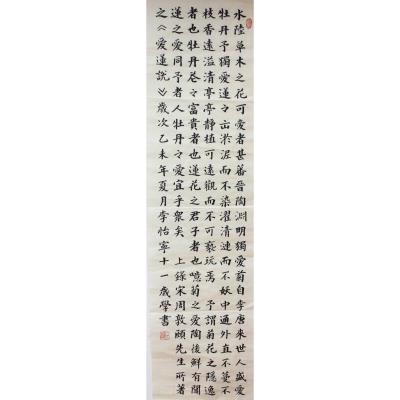 水陸草木之花可愛者甚蕃晉陶淵明獨愛菊自李唐来世人盛愛
牡丹予獨愛蓮之出淤泥而不染濯清漣而不妖中通外直不蔓不
枝香遠溢清亭亭静植可遠觀而不可褻玩焉 予謂菊花之隱逸
者也牡丹花之富貴者也蓮花之君子者也噫菊之愛陶後鮮有聞
蓮之愛同予者人牡丹之愛宜乎衆矣 上錄宋周敦頤先生所著
之《愛蓮說》歲次乙未年夏月李怡寧十一歲學書